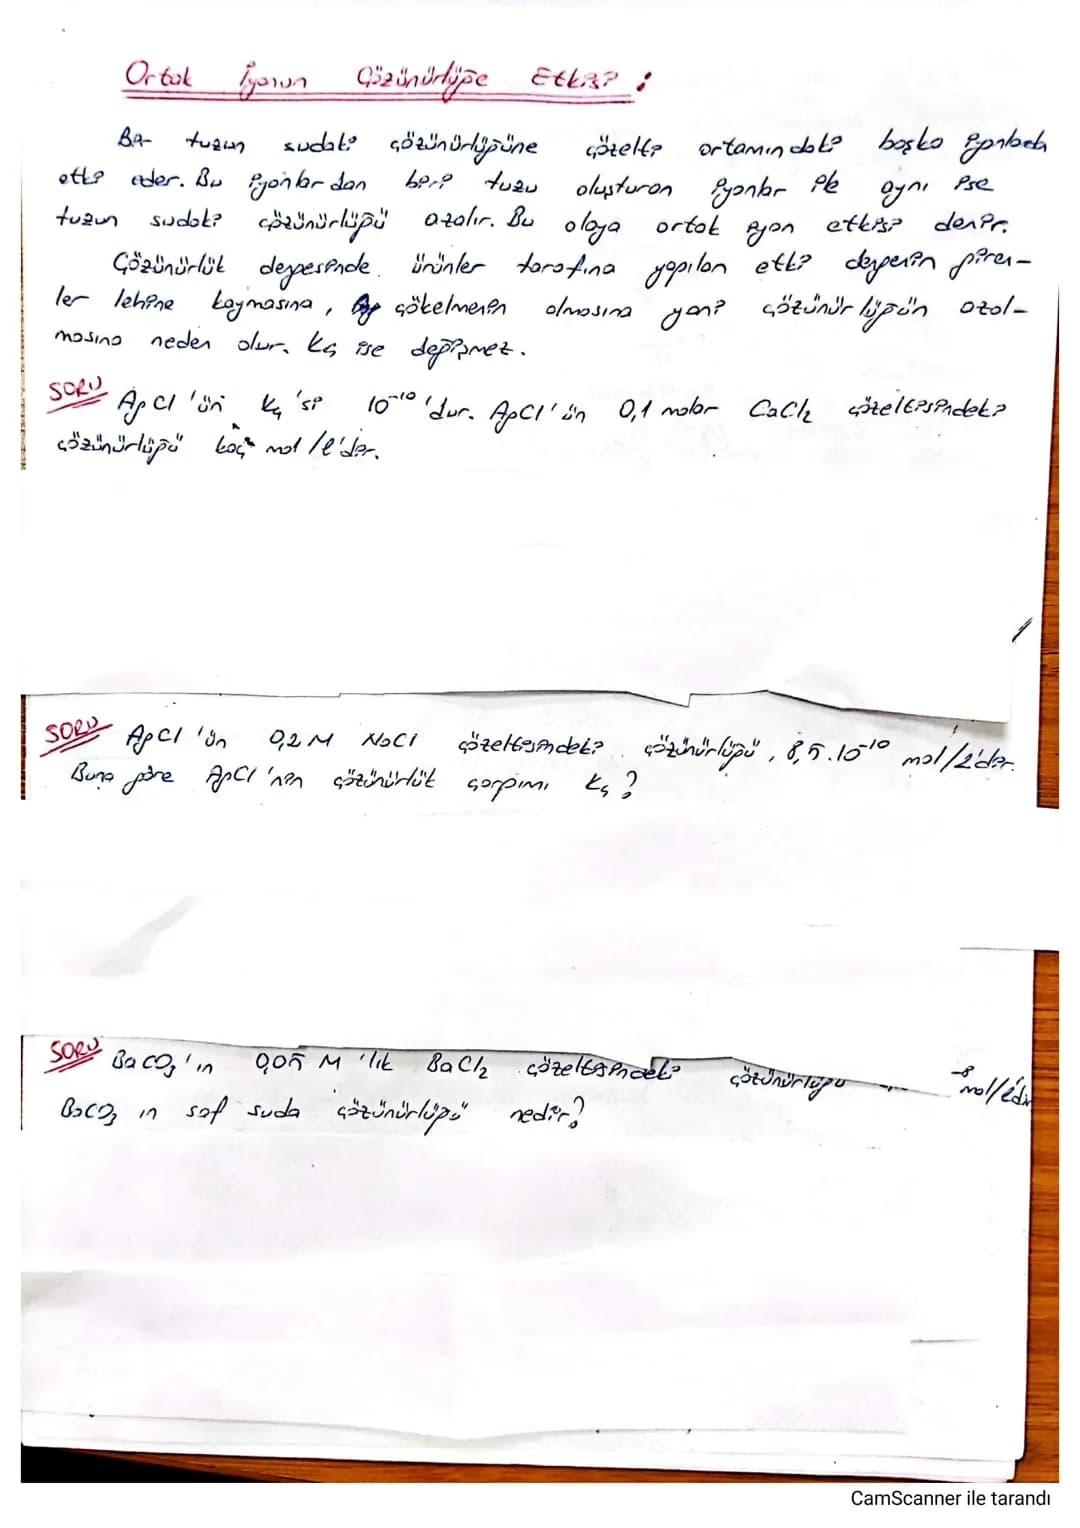 Ortak İyonun Çözünürlüğe Etkisi :
Bir tuzun sudaki çözünürlüğüne çözelti ortamındaki başka iyonlarda
etki eder. Bu iyonlar dan biri tuzu oluşturan iyonlar ile aynı ise
tuzun sudaki çözünürlüğü azalır. Bu olaya ortak iyon etkisi denir.
Çözünürlük dengesinde ürünler tarafına yapılan etki dengenin giren-
ler lehine kaymasına, çökelmenin olmasına yani çözünür lüğün azal-
masına neden olur. Kç ise değişmez.
SORU AgCl 'ün Kç 'si 10⁻¹⁰ 'dur. AgCl'ün 0,1 molar CaCl₂ çözeltisindeki
çözünürlüğü kaç mol/l'dir.
SORU AgCl 'ün 0,2 M NaCl çözeltisindeki çözünürlüğü, 8,5.10⁻¹⁰ mol/l'dir.
Buna göre AgCl 'nin çözünürlük çarpımı Kç ?
SORU BaCO₃'ın 0,05 M 'lık BaCl₂ çözeltisindeki çözünürlüğü ⁻⁸ mol/l'dir
BaCO₃ ın saf suda çözünürlüğü nedir?
CamScanner ile tarandı